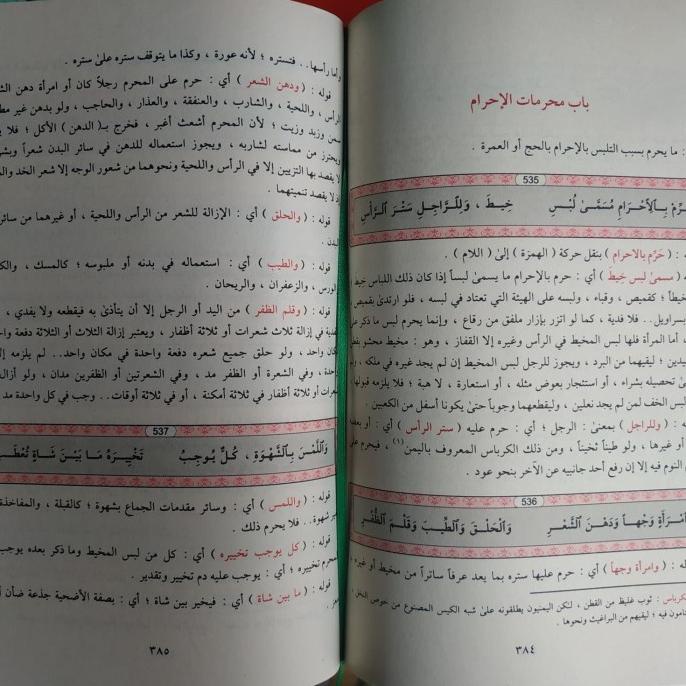 باب محرمات الإحرام
: ما يحرم بسبب التلبس بالإحرام بالحج أو العمرة .
535
بِالِاحْرَامِ مُسَمَّىٰ لُبْسِ خِيطَ ، وَلِلرَّاجِلِ سَتْرَ ٱلرَّأْسِ
: ( حَرِّم بالاحرام ) بنقل حركة ( الهمزة ) إلى ( اللام ) .
( مسمىٰ لبس خِيطَ ) أي : حرم بالإحرام ما يسمىٰ لبساً إذا كان ذلك اللباس خِيطَ
كقميص ، وقباء ، ولبسه على الهيئة التي تعتاد في لبسه ، فلو ارتدىٰ بقميص
بسراويل.. فلا فدية ، كما لو اتزر بإزار ملفق من رقاع ، وإنما يحرم لبس ما ذكر على
، أما المرأة فلها لبس المخيط في الرأس وغيره إلا القفاز ، وهو : مخيط محشو بقطن
ليقيهما من البرد ، ويجوز للرجل لبس المخيط إن لم يجد غيره في ملكه ،
تحصيله بشراء ، أو استئجار بعوض مثله ، أو استعارة ، لا هبة ؛ فلا يلزمه قبولها
لبس الخف لمن لم يجد نعلين ، وليقطعهما وجوباً حتىٰ يكونا أسفل من الكعبين .
: ( وللراجل ) بمعنىٰ : الرجل ؛ أي : حرم عليه ( ستر الرأس ) أي : أو بعضه
أو غيرها ، ولو طيناً ثخيناً ، ومن ذلك الكرباس المعروف باليمن (١) ، فيحرم على
النوم فيه إلا إن رفع أحد جانبيه عن الآخر بنحو عود .
536
وَجْهاً وَدَهْنَ ٱلشَّعْرِ وَٱلْحَلْقَ وَٱلطِّيبَ وَقَلْمَ ٱلظُّفْرِ
: ( وامرأة وجهاً ) أي : حرم عليها ستره بما يعد عرفاً ساتراً من مخيط أو غيره ،
: ثوب غليظ من القطن ، لكن اليمنيون يطلقونه علىٰ شبه الكيس المصنوع من خوص النخل ،
فيه ؛ ليقيهم من البراغيث ونحوها .
٣٨٤
وأما رأسها.. فتستره ؛ لأنه عورة ، وكذا ما يتوقف ستره علىٰ ستره .
قوله : ( ودهن الشعر ) أي : حرم على المحرم رجلاً كان أو امرأة دهن
الرأس ، واللحية ، والشارب ، والعنفقة ، والعذار ، والحاجب ، ولو بدهن غير
سمن وزبد وزيت ؛ لأن المحرم أشعث أغبر ، فخرج بـ( الدهن ) الأكل ؛ فلا
ويحترز من مماسته لشاربه ، ويجوز استعماله للدهن في سائر البدن شعراً
يقصد بها التزيين إلا في الرأس واللحية ونحوهما من شعور الوجه إلا شعر الخد
إذ لا يقصد تنميتهما .
قوله : ( والحلق ) أي : الإزالة للشعر من الرأس واللحية ، أو غيرهما من سائر
البدن .
قوله : ( والطيب ) أي : استعماله في بدنه أو ملبوسه ؛ كالمسك ،
والورس ، والزعفران ، والريحان .
قوله : ( وقلم الظفر ) من اليد أو الرجل إلا أن يتأذىٰ به فيقطعه ولا يفدي ،
الفدية في إزالة ثلاث شعرات أو ثلاثة أظفار ، ويعتبر إزالة الثلاث أو الثلاثة دفعة
مكان واحد ، ولو حلق جميع شعره دفعة واحدة في مكان واحد.. لم يلزمه إلا
، وفي الشعرة أو الظفر مد ، وفي الشعرتين أو الظفرين مدان ، ولو أزال
شعرات أو ثلاثة أظفار في ثلاثة أمكنة ، أو في ثلاثة أوقات.. وجب في كل واحد مد
537
وَٱللَّمْسَ بِٱلشَّهْوَةِ ، كُلٌّ يُوجِبُ تَخْيِيرَهُ مَا بَيْنَ شَاةٍ
قوله : ( واللمس ) أي : وسائر مقدمات الجماع بشهوة ؛ كالقبلة ، والمفاخذة
بغير شهوة.. فلا يحرم ذلك .
قوله : ( كل يوجب تخييره ) أي : كل من لبس المخيط وما ذكر بعده يوجب
تخييره ؛ أي : يوجب عليه دم تخيير وتقدير .
قوله : ( ما بين شاة ) أي : فيخير بين شاة ؛ أي : بصفة الأضحية جذعة ضأن
٣٨٥